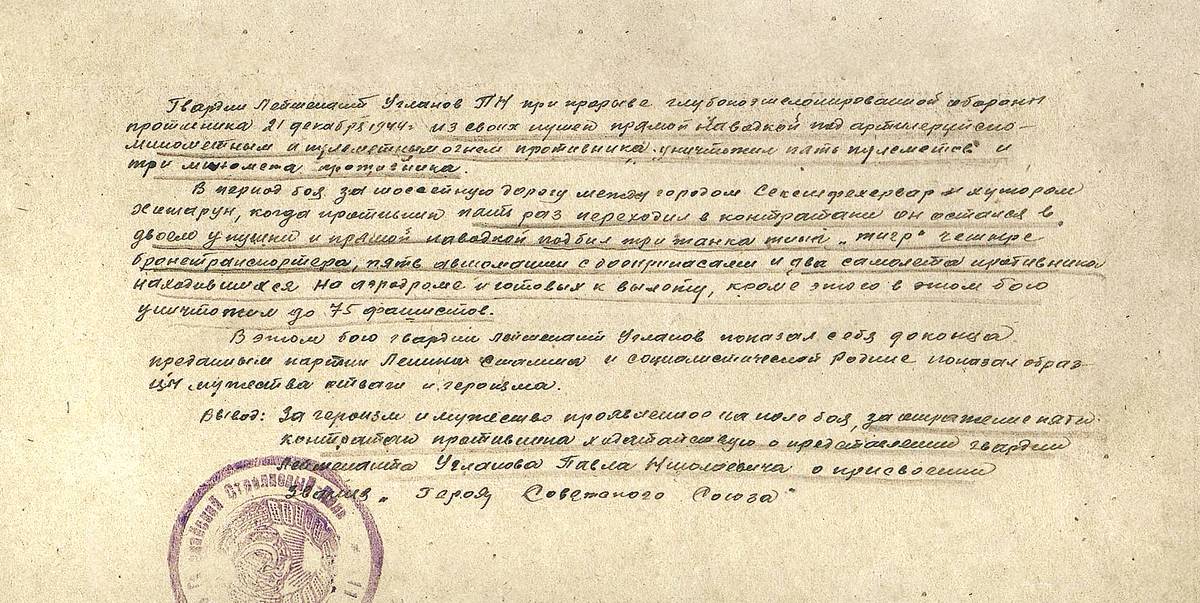 Гвардии Лейтенант Угланов ПН при прорыве глубокоэшелонированной обороны
противника 21 декабря 1944г из своих пушек прямой наводкой под артиллерийско-
минометным и пулеметным огнем противника уничтожил пять пулеметов и
три миномета противника.
В период боя за шоссейную дорогу между городом Секешфехервар и хутором
когда противник пять раз переходил в контратаки он остался в
двоем у пушки и прямой наводкой подбил три танка типа „тигр" четыре
бронетранспортера, пять автомашин с боеприпасами и два самолета противника
находившихся на аэродроме и готовых к вылоту, кроме этого в этом бою
уничтожил до 75 фашистов.
В этом бою гвардии лейтенант Угланов показал себя доконца
преданным партии Ленина Сталина и социалистической Родине показал образ-
цы мужества отваги и героизма.
Вывод: За героизм и мужество проявленное на поле боя, за отражение пяти
контратак противника ходатайствую о представлении гвардии
Лейтенанта Угланова Павла Николаевича о присвоении
звания „Героя Советского Союза"
Стрелковый Полк